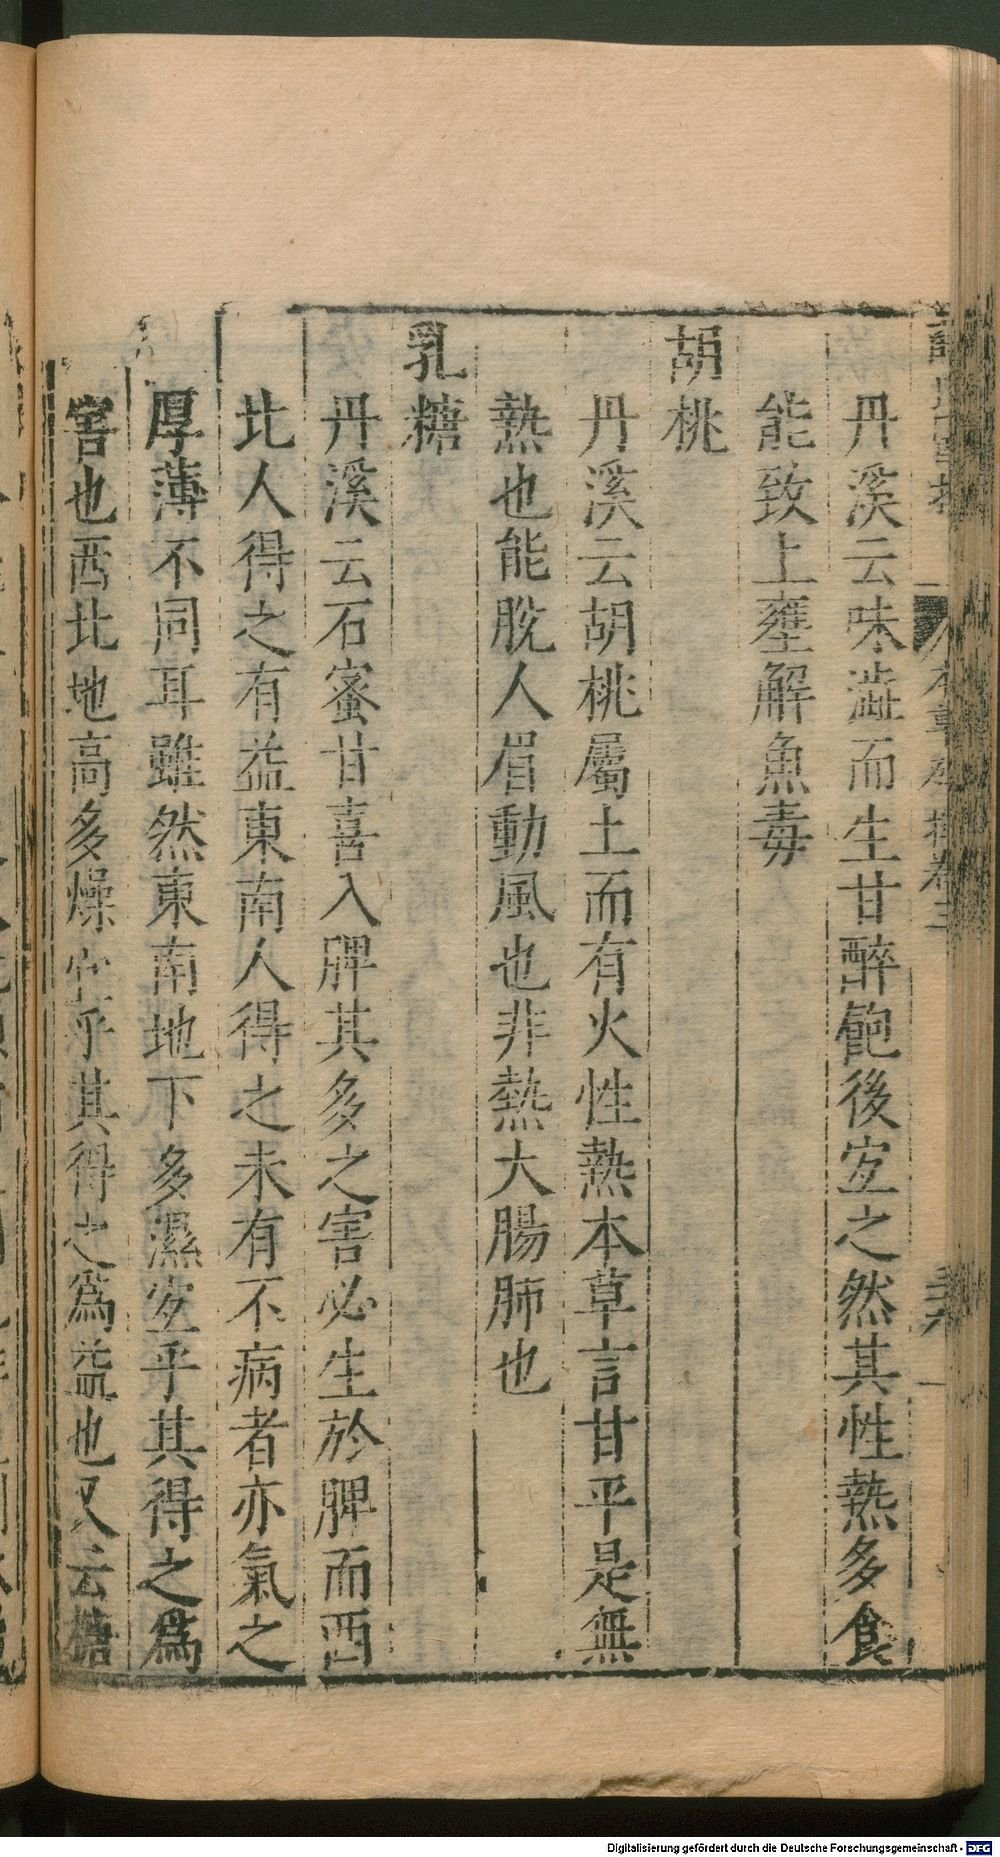 丹溪云味澁而生甘醉飽後宐之然其性熱多食
能致上壅解魚毒
胡桃
丹溪云胡桃屬土而有火性熱本草言甘平是無
熱也能脫人眉動風也非熱大腸肺也
乳糖
丹溪云石蜜甘喜入脾其多之害必生於脾而西
北人得之有益東南人得之未有不病者亦氣之
厚薄不同耳雖然東南地下多濕宐乎其得之爲
害也西北地高多燥宐乎其得之爲益也又云糖
Digitalisierung gefördert durch die Deutsche Forschungsgemeinschaft - DFG